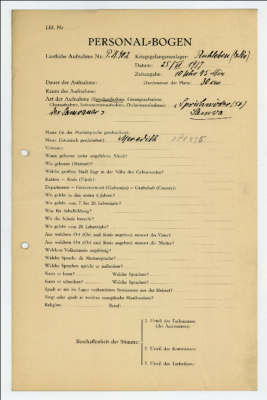 Lfd. Nr
PERSONAL-BOGEN
Lautliche Aufnahme Nr.: P.K. 902
Kriegsgefangenenlager: Ruhleben
Datum: 25/VI. 1917
Zeitangabe: 10 Uhr 45 Min
Dauer der Aufnahme:
Durchmesser der Platte: 30 cm
Raum der Aufnahme:
Art der Aufnahme (Sprechaufnahme, Gesangsaufnahme,
Choraufnahme, Instrumentenaufnahme, Orchesteraufnahme):
Sprichwörter
Samoa
Name (in der Muttersprache geschrieben):
Name (lateinisch geschrieben): Meredith
Vorname:
Wann geboren (oder ungefähres Alter)?
Wo geboren (Heimat)?
Welche größere Stadt liegt in der Nähe des Geburtsortes?
Kanton — Kreis (Ujezd):
Departement — Gouvernement (Gubernija) — Grafschaft (County):
Wo gelebt in den ersten 6 Jahren?
Wo gelebt vom 7. bis 20. Lebensjahr?
Was für Schulbildung?
Wo die Schule besucht?
Wo gelebt vom 20. Lebensjahr?
Aus welchem Ort (Ort und Kreis angeben) stammt der Vater?
Aus welchem Ort (Ort und Kreis angeben) stammt die Mutter?
Welchem Volksstamm angehörig?
Welche Sprache als Muttersprache?
Welche Sprachen spricht er außerdem?
Kann er lesen?
Welche Sprachen?
Kann er schreiben?
Welche Sprachen?
Spielt er ein im Lager vorhandenes Instrument aus der Heimat?
Singt oder spielt er modern europäische Musikweisen?
Religion:
Beruf:
Beschaffenheit der Stimme:
1. Urteil des Fachmannes
(des Assistenten):
2. Urteil des Kommissars:
3. Urteil des Technikers: